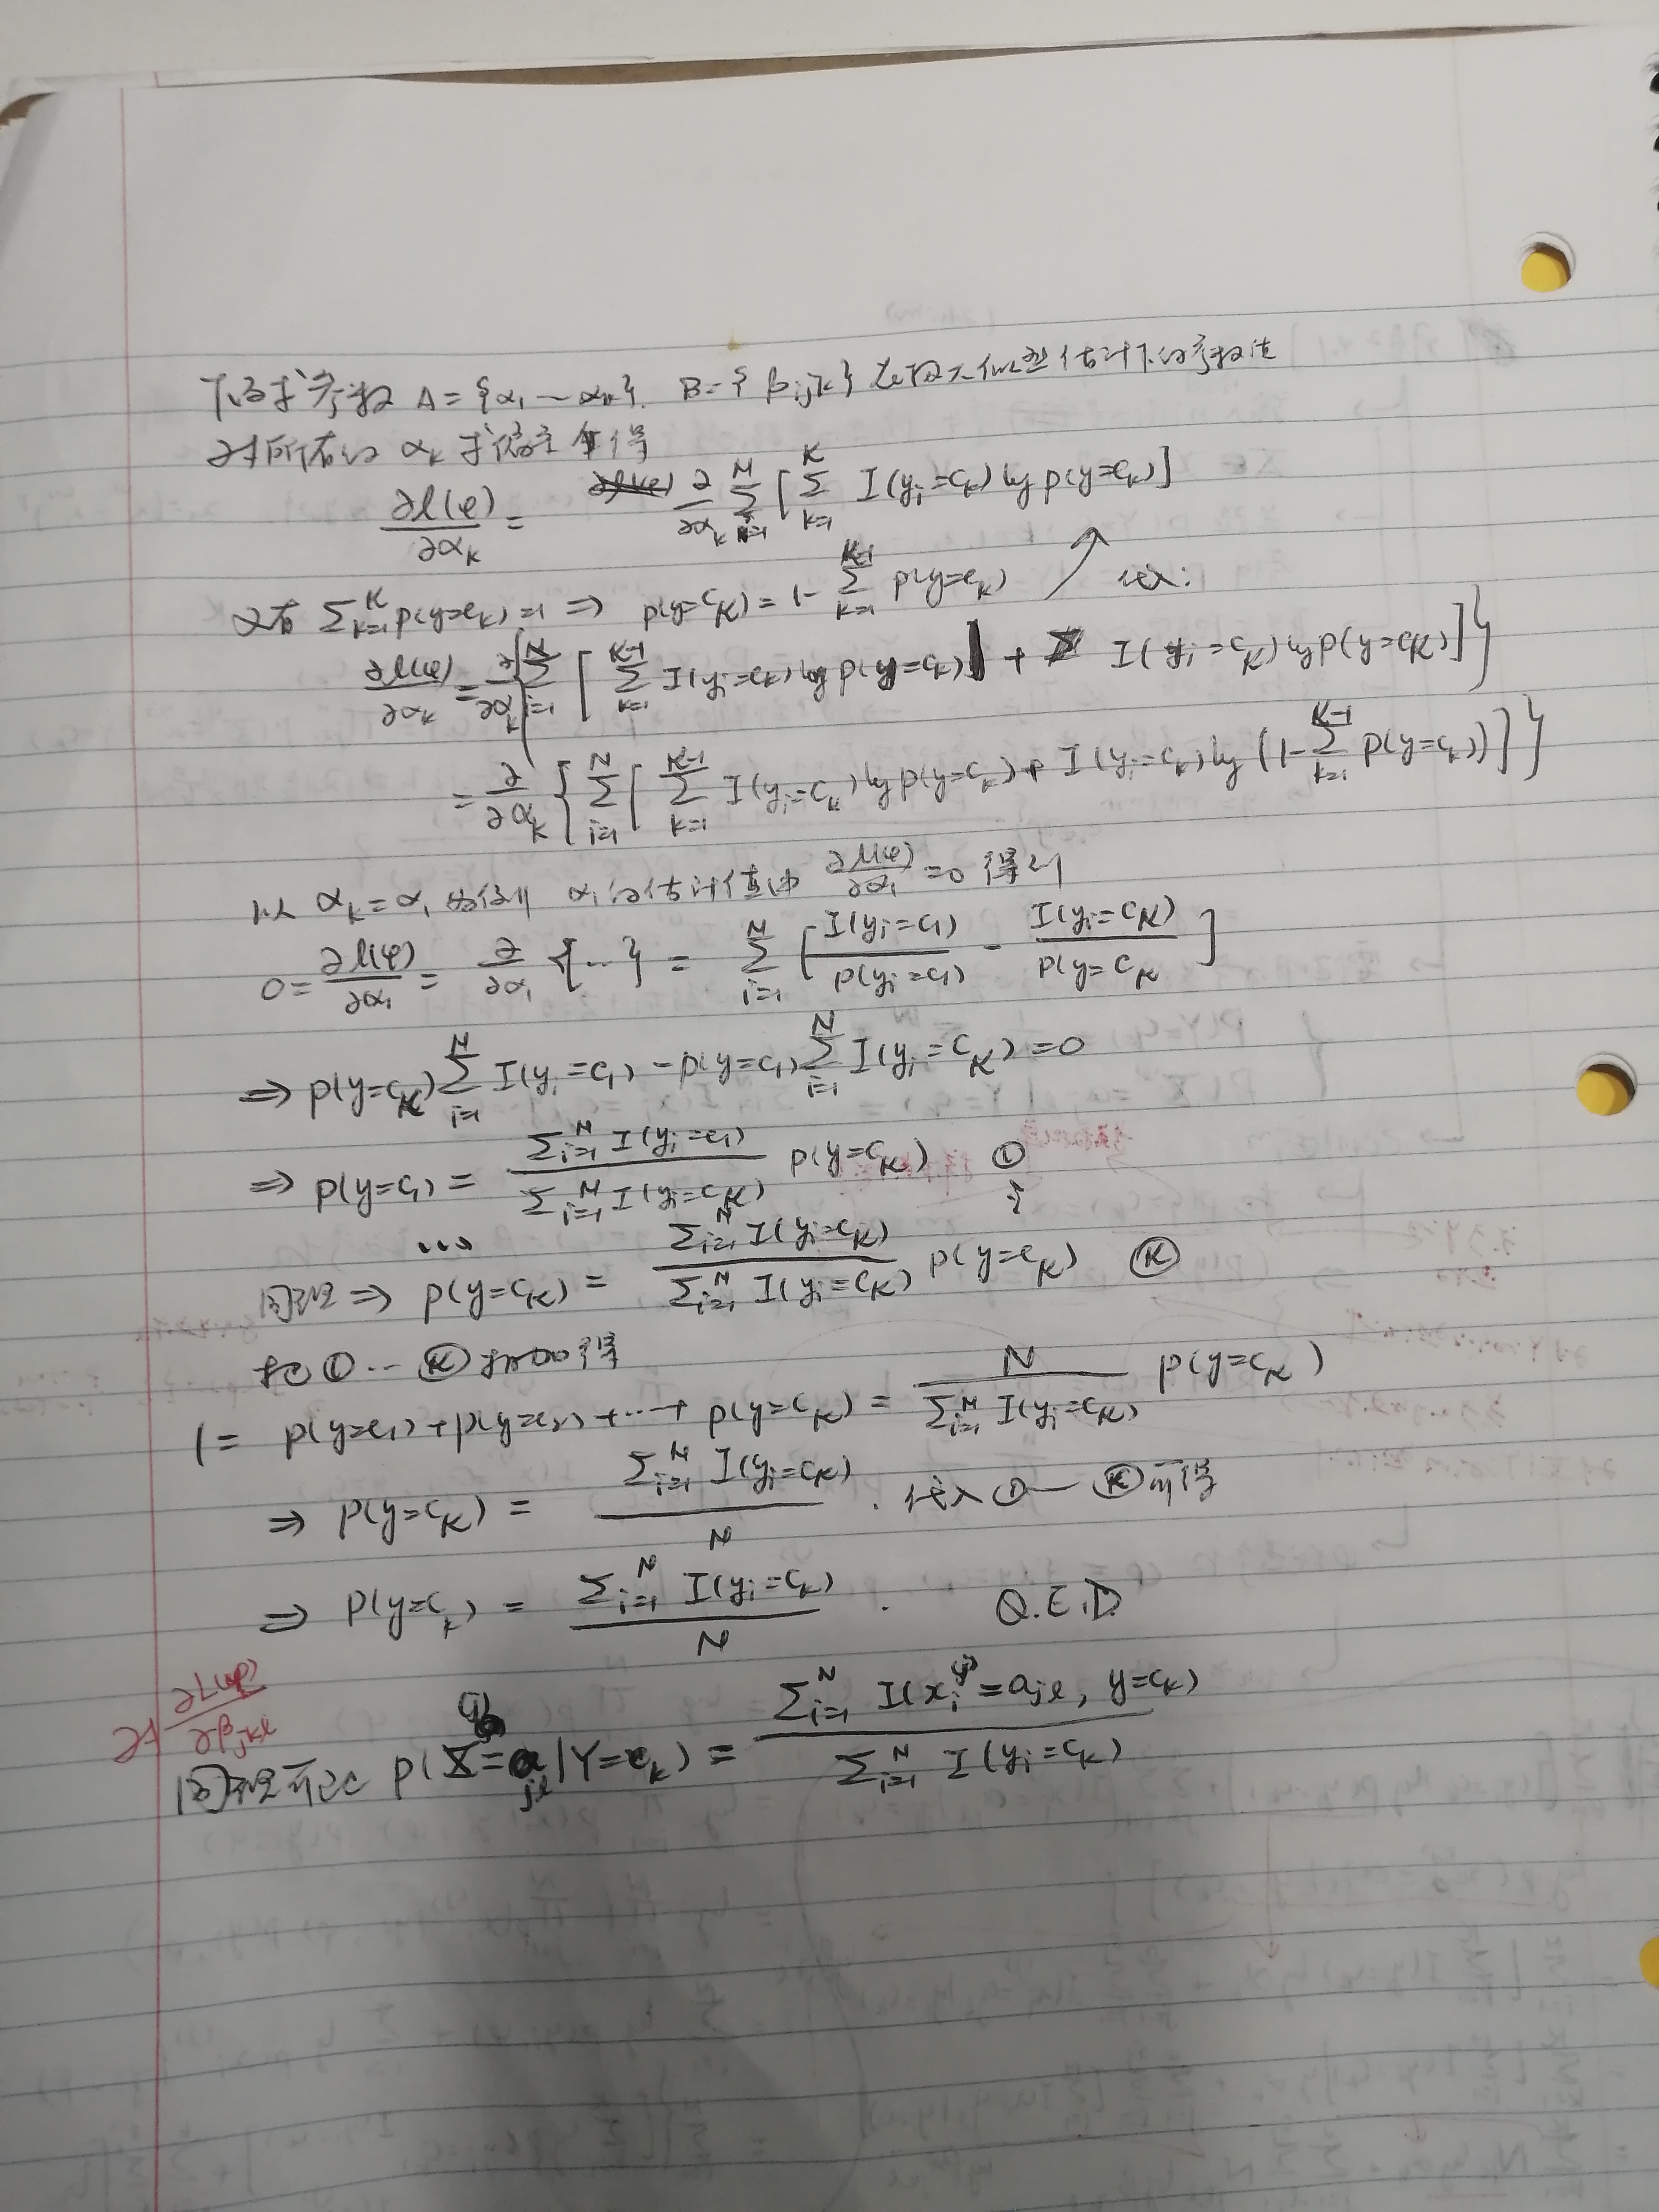 下面求参数 A={α₁~αₖ}. B={βijk} 在极大似然估计下的参数值
对所有的 αₖ 求偏导 得
∂l(φ)/∂αₖ = ∂/∂αₖ Σ_{i=1}^{N} [Σ_{k=1}^{K} I(yᵢ=cₖ) log p(y=cₖ)]
又有 Σ_{k=1}^{K} p(y=cₖ)=1 ⇒ p(y=c_K) = 1-Σ_{k=1}^{K-1} p(y=cₖ) ↗ 代入:
∂l(φ)/∂αₖ = ∂/∂αₖ{Σ_{i=1}^{N} [Σ_{k=1}^{K-1} I(yᵢ=cₖ) log p(y=cₖ) + I(yᵢ=c_K) log p(y=c_K)]}
= ∂/∂αₖ {Σ_{i=1}^{N} [Σ_{k=1}^{K-1} I(yᵢ=cₖ) log p(y=cₖ) + I(yᵢ=c_K) log (1-Σ_{k=1}^{K-1} p(y=cₖ))]}
以 αₖ=α₁ 为例 α₁的估计值由 ∂l(φ)/∂α₁ =0 得到
0 = ∂l(φ)/∂α₁ = ∂/∂α₁ {...} = Σ_{i=1}^{N} [I(yᵢ=c₁)/p(yᵢ=c₁) - I(yᵢ=c_K)/p(y=c_K]
⇒ p(y=c_K) Σ_{i=1}^{N} I(yᵢ=c₁) - p(y=c₁) Σ_{i=1}^{N} I(yᵢ=c_K) =0
⇒ p(y=c₁) = Σ_{i=1}^{N} I(yᵢ=c₁) / Σ_{i=1}^{N} I(yᵢ=c_K) p(y=c_K) ①
...
同理 ⇒ p(y=c_K) = Σ_{i=1}^{N} I(yᵢ=c_K) / Σ_{i=1}^{N} I(yᵢ=c_K) p(y=c_K) Ⓚ
把 ① ... Ⓚ 相加得
1 = p(y=c₁)+p(y=c₂)+...+ p(y=c_K) = N / Σ_{i=1}^{N} I(yᵢ=c_K) p(y=c_K)
⇒ p(y=c_K) = Σ_{i=1}^{N} I(yᵢ=c_K) / N . 代入①—Ⓚ可得
⇒ p(y=cₖ) = Σ_{i=1}^{N} I(yᵢ=cₖ) / N . Q.E.D.
对 ∂L(φ)/∂β_{jkl}
同理可记 p(X^{(j)}=a_{jl}|Y=cₖ) = Σ_{i=1}^{N} I(xᵢ^{(j)}=a_{jl}, y=cₖ) / Σ_{i=1}^{N} I(yᵢ=cₖ)